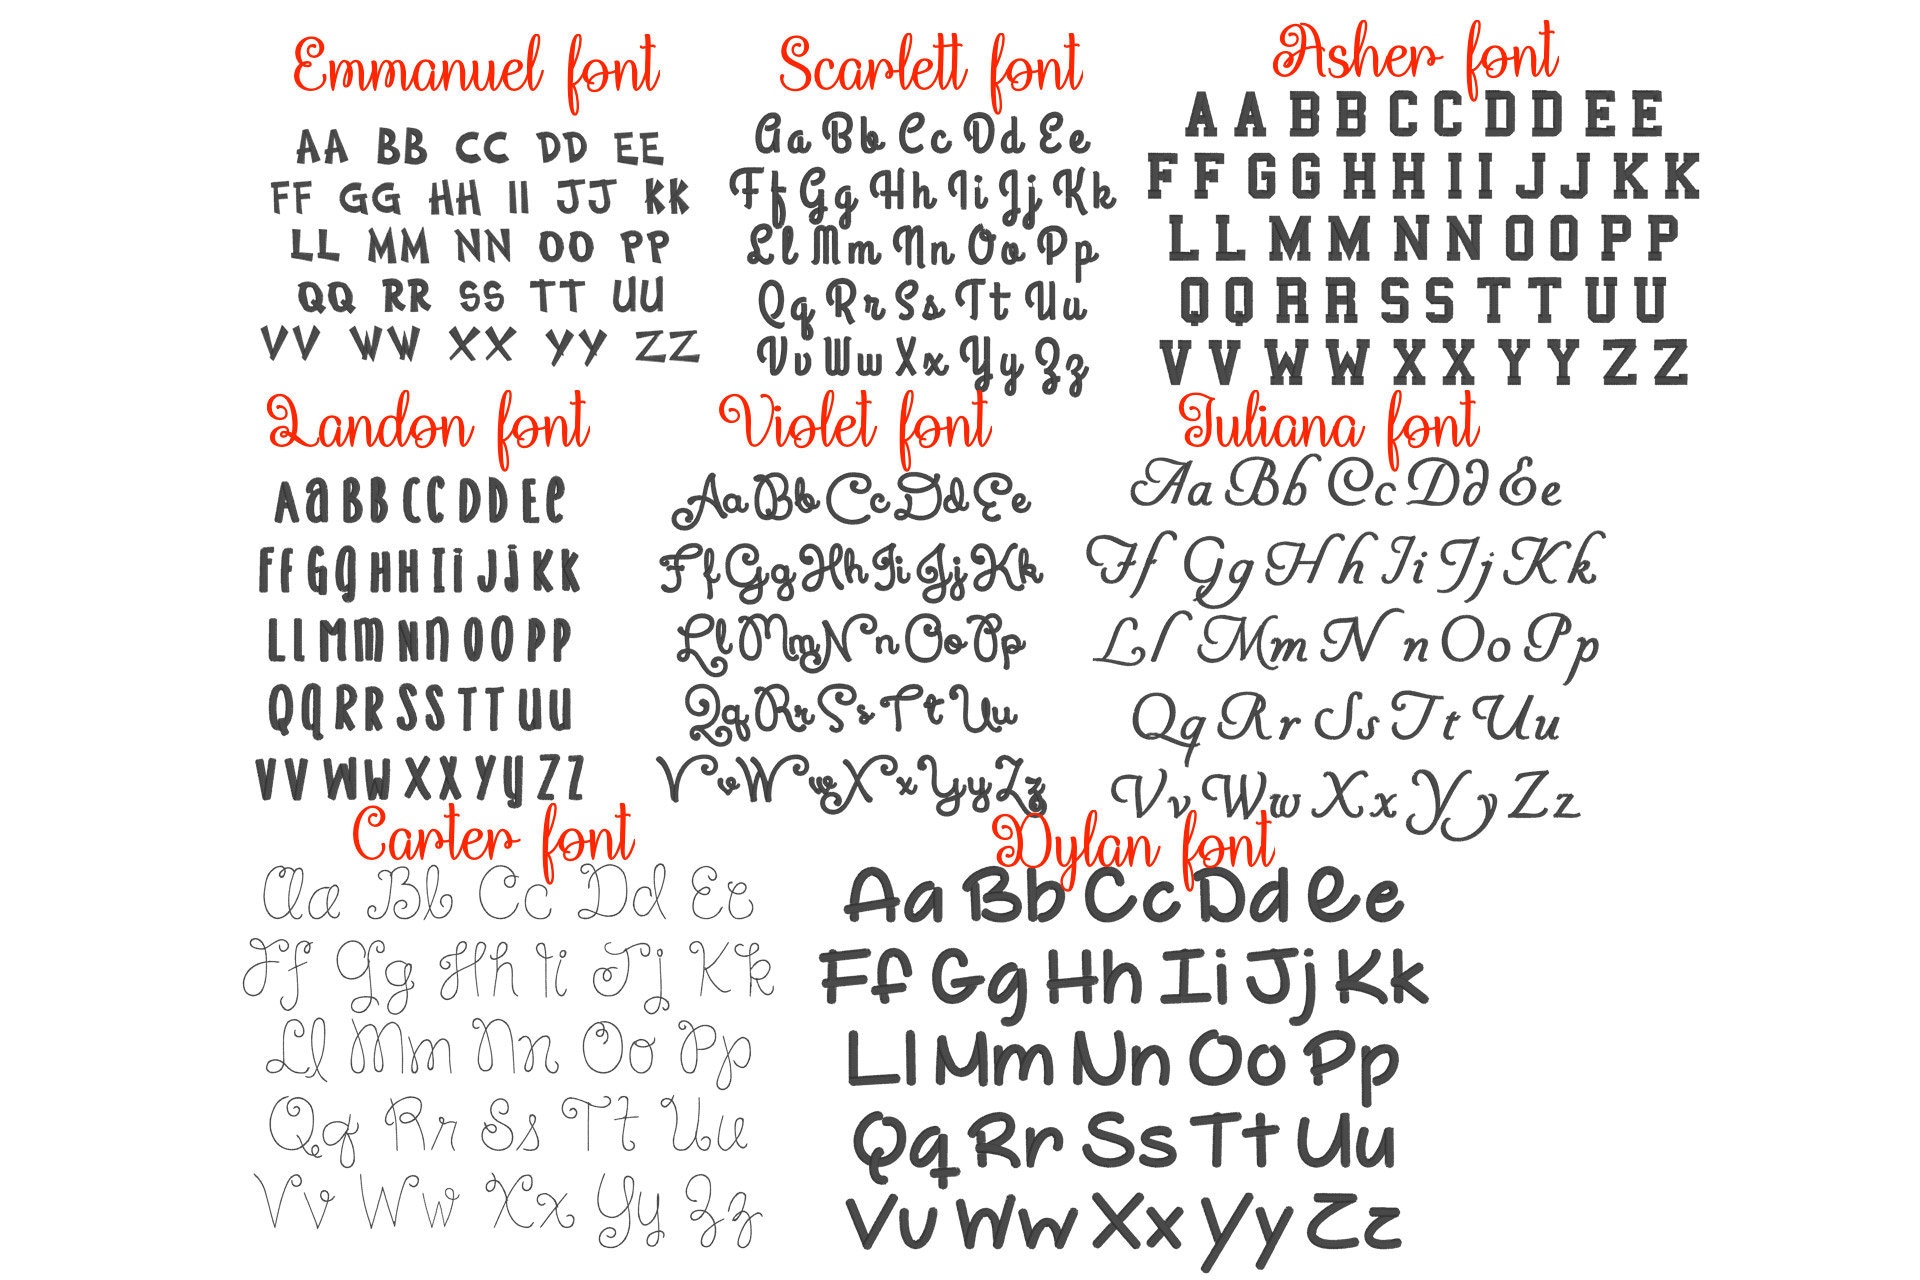 Emmanuel font
AA BB CC DD EE
FF GG HH II JJ KK
LL MM NN OO PP
QQ RR SS TT UU
VV WW XX YY ZZ
Scarlett font
Aa Bb Cc Dd Ee
Ff Gg Hh Ii Jj Kk
Ll Mm Nn Oo Pp
Qq Rr Ss Tt Uu
Vv Ww Xx Yy Zz
Asher font
A A B B C C D D E E
F F G G H H I I J J K K
L L M M N N O O P P
Q Q R R S S T T U U
V V W W X X Y Y Z Z
Landon font
Aa BB CC DD Ee
FF Gg HH Ii JJ KK
LL Mm Nn OO PP
Qq RR SS TT UU
VV WW XX Yy ZZ
Violet font
Aa Bb Cc Dd Ee
Ff Gg Hh Ii Jj Kk
Ll Mm Nn Oo Pp
Qq Rr Ss Tt Uu
Vv Ww Xx Yy Zz
Juliana font
Aa Bb Cc Dd Ee
Ff Gg Hh Ii Jj Kk
Ll Mm Nn Oo Pp
Qq Rr Ss Tt Uu
Vv Ww Xx Yy Zz
Carter font
Aa Bb Cc Dd Ee
Ff Gg Hh Ii Jj Kk
Ll Mm Nn Oo Pp
Qq Rr Ss Tt Uu
Vv Ww Xx Yy Zz
Dylan font
Aa Bb Cc Dd Ee
Ff Gg Hh Ii Jj Kk
Ll Mm Nn Oo Pp
Qq Rr Ss Tt Uu
Vv Ww Xx Yy Zz